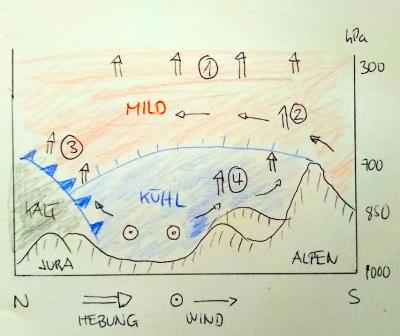 hPa
300
①
MILD
②
③
700
④
KALT
KÜHL
850
JURA
ALPEN
1000
N
HEBUNG
WIND
S